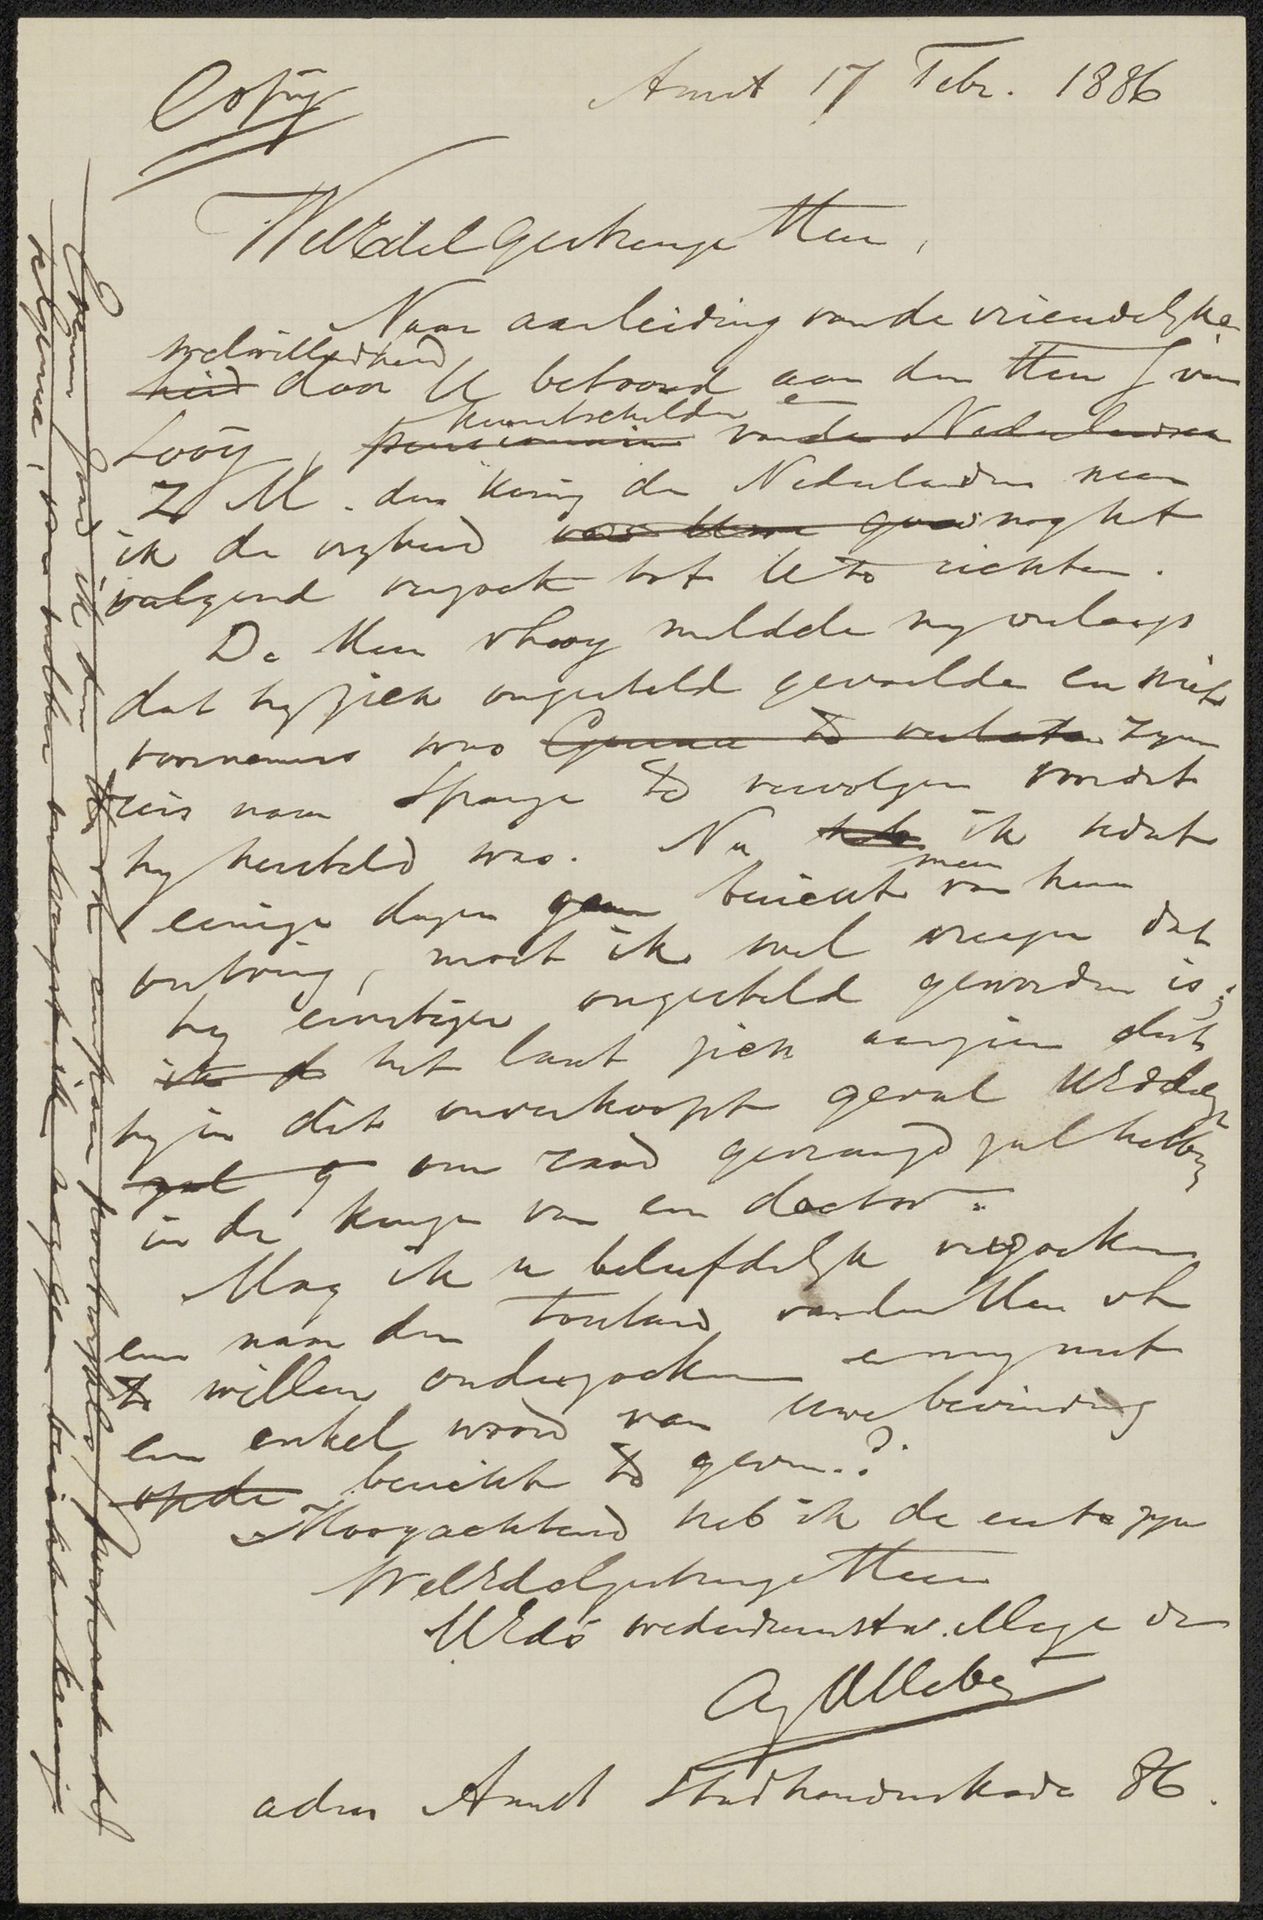 Copij
Amst 17 Febr. 1886
WelEdelGestrenge Heer,
Naar aanleiding van de vriendelijke
welwillendheid
heid door U betoond aan den Heer J van
kunstschilder
Looy, pensionnair van de Nederlanden
Z M. den Koning der Nederlanden neem
ik de vrijheid nog het
volgend verzoek tot U te richten.
De Heer v Looy meldde mij onlangs
dat hij zich ongesteld gevoelde en niet
voornemens was Genua te verlaten zijn
reis naar Spanje te vervolgen voordat
hij hersteld was. Nu heb ik sedert
meer
einige dagen geen bericht van hem
ontving, moet ik wel vreezen dat
hij ernstiger ongesteld geworden is;
ik d het laat zich aanzien dat
hij in dit onverhoopt geval UEdele
zal g om raad gevraagd zal hebben
in de keuze van een doctor.
Mag ik u beleefdelijk verzoeken
een naar den toestand van den Heer vL
te willen onderzoeken en mij met
een enkel woord van uwe bevinding
op de bericht te geven.?
Hoogachtend heb ik de eer te zijn
WelEdelGestrenge Heer
UEds wededienstw.illige dr
AJ Allebé
adres Amst Stadhouderskade 86.
ik den en poste restante
telegrammen, van welken ontvangst ik nog geen bericht kreeg